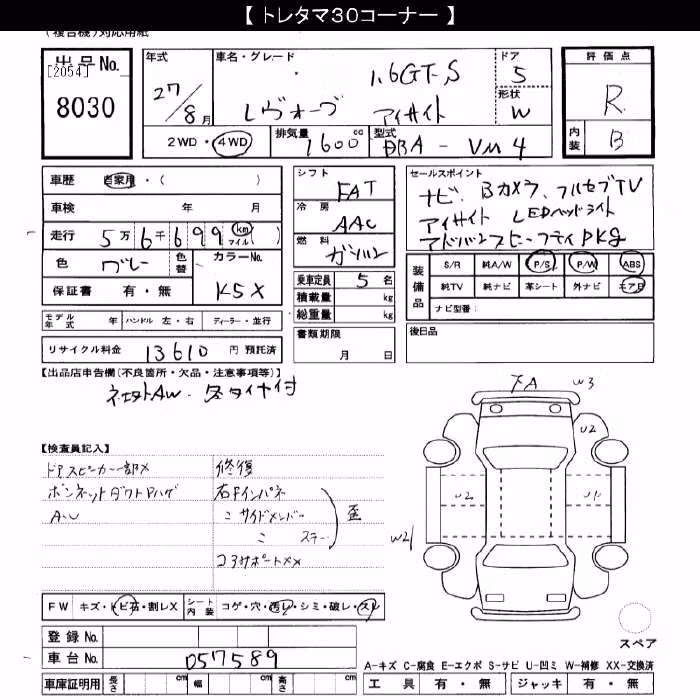 【 トレタマ30コーナー 】
(複合機)対応用紙
出品No.
[2054]
8030
年式
27/8月
車名・グレード
レヴォーグ
1.6GT-S
アイサイト
ドア
5
形状
W
評価点
R
内装
B
2WD・4WD
排気量
1600 cc
型式
DBA - VM4
車歴 自家用・( )
車検 年 月
走行 5万6千699 km マイル ( )
色 グレー
色替
カラーNo.
K5X
保証書 有・無
シフト
FAT
冷房
AAC
燃料
ガソリン
乗車定員 5 名
積載量 kg
総重量 kg
セールスポイント
ナビ、Bカメラ、フルセグTV
アイサイト LEDヘッドライト
アドバンスセーフティPKG
装備品
S/R 純A/W P/S P/W ABS
純TV 純ナビ 革シート 外ナビ エアB
ナビ型番:
モデル年式 年 ハンドル 左・右 ディーラー・並行
リサイクル料金 13610 円 預託済
書類期限
月 日
後日品
【出品店申告欄(不良箇所・欠品・注意事項等)】
冬タイヤ付
【検査員記入】
ドアスピーカー一部X
ボンネットダクトPハゲ
A-U
修復
右Fインパネ
〃 サイドメンバー
〃 ステー
歪
コアサポートXX
下A
W3
U2
U2
W21
FW キズ・トビ石・割レX
シート内装 コゲ・穴・汚レ・シミ・破レ・スレ
登録No.
車台No. 057589
車庫証明用 長さ cm 幅 cm 高さ cm
スペア
A-キズ C-腐食 E-エクボ S-サビ U-凹ミ W-補修 XX-交換済
工具 有・無 ジャッキ 有・無